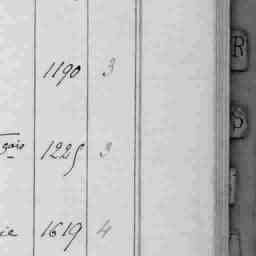 R
1190 3
S
gais 1225 3
ie 1619 4